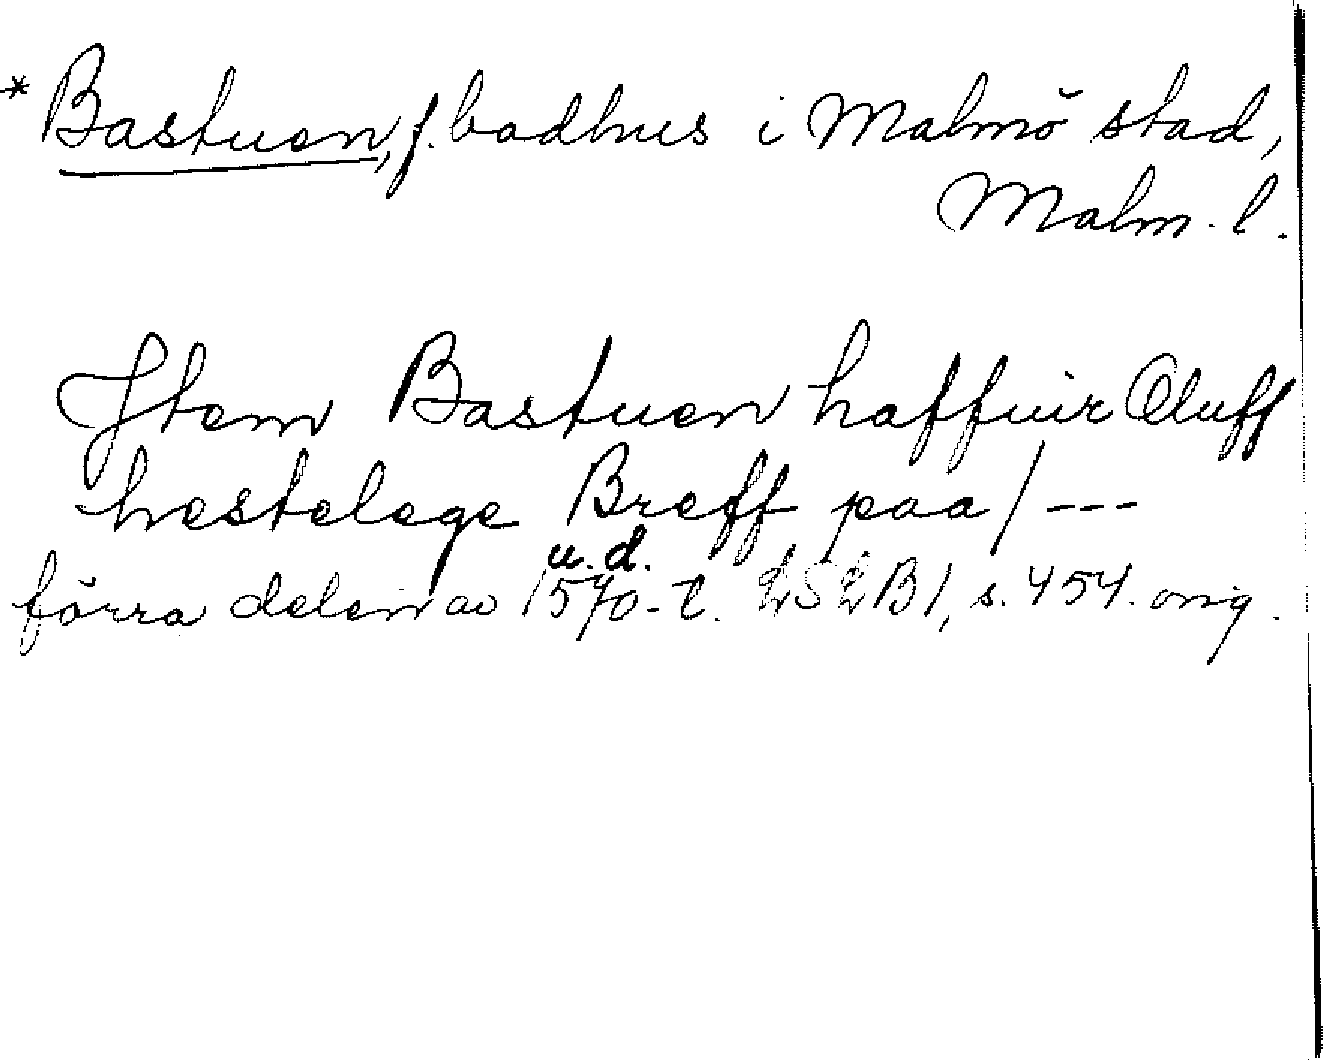 * Bastuen, f. badhus i Malmö stad,
Malm. l.
Jtem Bastuen haffuir Oluff
hestelege Breff paa / ---
u. d.
förra delen av 1570-t. LSLB1, s. 454. orig.